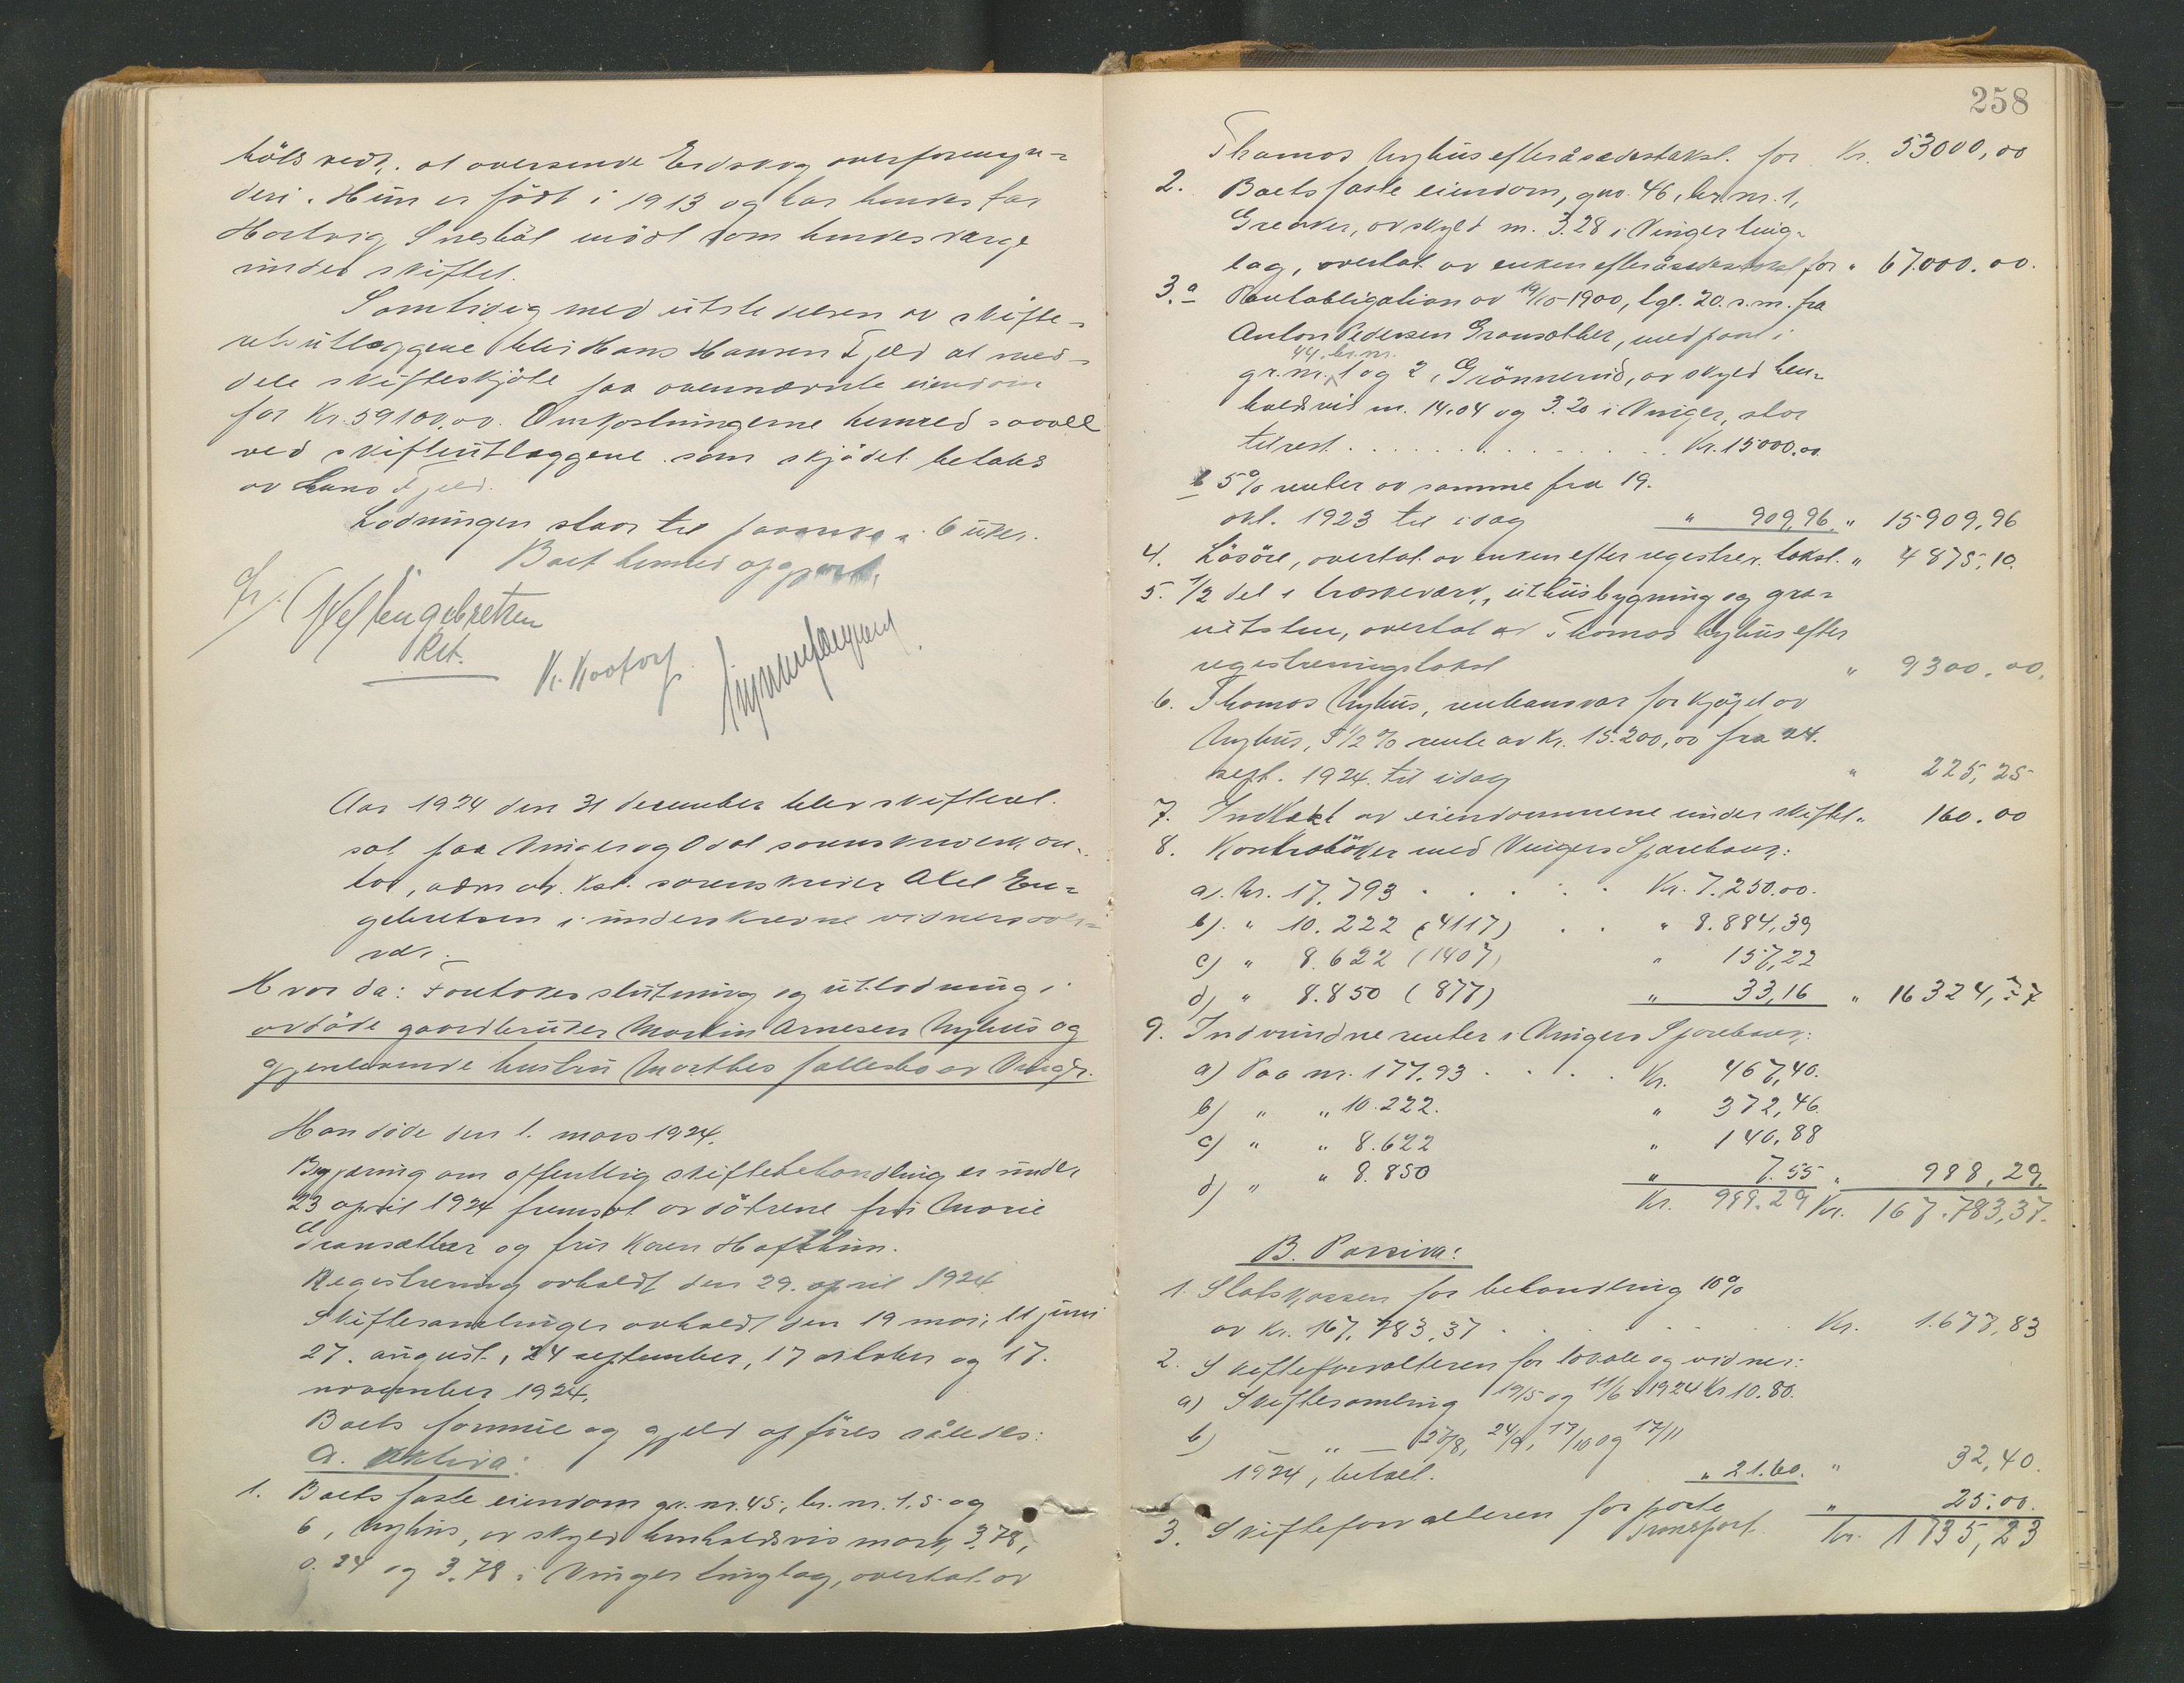 höts vedt. at oversende Eidskog overformyn-
deri. Hun er född i 1913 og har hendes far
Hartvig Sneböl mödt som hendes værge
under skiftet.
Samtidig med utstedelsen av skifte-
utlæggene blev Hans Hansen Fjeld at med-
dele skifteskjöte paa ovennævnte eiendom
for Kr. 59100,00. Omkostningerne herved saavel
ved skifteutlæggene som skjödet betales
av Hans Fjeld.
Lodningen staar til paaanke i 6 uker.
Boet hermed opgjort.
Axel Engebretsen
kst.
K. Kaafors
Aar 1924 den 31 december blev skifteret
sat paa Vinger og Odal sorenskriverkon-
tor, adm. av kst. sorenskriver Axel En-
gebretsen i underskrevne vidners over-
vær.
Hvorda: Foretokes slutning og utlodning i
avdöde gaardbruker Martin Arnesen Nyhus og
gjenlevende hustru Marthes fællesbo av Vinger.
Han döde den 1. mars 1924.
Begjæring om offentlig skiftebehandling er under
23 april 1924 fremsat av dötrene fru Marie
Gransæther og fru Karen Hafthun.
Registrering avholdt den 29. april 1924
Skiftesamlinger avholdt den 19 mai, 11 juni
27. august, 24 september, 17 oktober og 17.
november 1924.
Boets formue og gjeld opföres således:
A. Aktiva:
1. Boets faste eiendom gr. nr. 45, br. nr. 1, 5 og
6, Nyhus, av skyld henholdsvis mark 3.78,
0.24 og 3.78 i Vinger tinglag, overtat av
258
Thomas Nyhus efter åsædestakst for Kr. 53000,00
2. Boets faste eiendom, gno. 46, br. nr. 1,
Greaker, av skyld m. 3.28 i Vinger ting-
lag, overtat av enken efter åsædestakst for " 67.000.00.
3. a Pantobligation av 19/10-1900, tgl. 20. s.m. fra
Anton Pedersen Gransæther, med pant i
44, br. nr.
gr. nr. 1 og 2, Grönnerud, av skyld hen-
holdsvis m. 14.04 og 3.20 i Vinger, stor
til rest . . . . . . Kr. 15000.00
b 5% renter av samme fra 19.
okt. 1923 til idag " 909,96. " 15909,96
4. Lösöre, overtat av enken efter registrer. takst. " 4875,10.
5. 1/2 del i træskeværk, uthusbygning og gra-
nitsten, overtat av Thomas Nyhus efter
registreringstakst " 9300.00.
6. Thomas Nyhus, renteansvar for kjöpet av
Nyhus, 5 1/2 % rente av Kr. 15.200,00 fra 24.
sept. 1924 til idag " 225,25
7. Indtækt av eiendommene under skiftet " 160.00
8. Kontraböker med Vingers Sparebank:
a). Nr. 17.793 . . . . Kr. 7.250.00.
b). " 10.222 (4117) . . " 8.884,39
c) " 8.622 (1407) " 157,22
d) " 8.850 (877) " 33,16 " 16324,77
9. Indvundne renter i Vingers Sparebank:
a) Paa nr. 177.93 . . . . Kr. 467,40.
b) " " 10.222. " 372,46.
c) " " 8.622 " 140,88
d) " " 8.850 " 7.55 " 988,29.
Kr. 988.29 Kr. 167.783,37.
B. Passiva:
1. Statskassen for behandling 10%
av Kr. 167.783,37 . . . . . Kr. 1.677,83
2. Skifteforvalteren for lokale og vidner:
a) Skiftesamling 19/5 og 11/6 1924 Kr. 10.80.
b) — " — 27/8, 24/9, 17/10 og 17/11
1924, betalt. " 21.60. " 32,40.
3. Skifteforvalteren for porto " 25.00.
Transport Kr. 1735,23